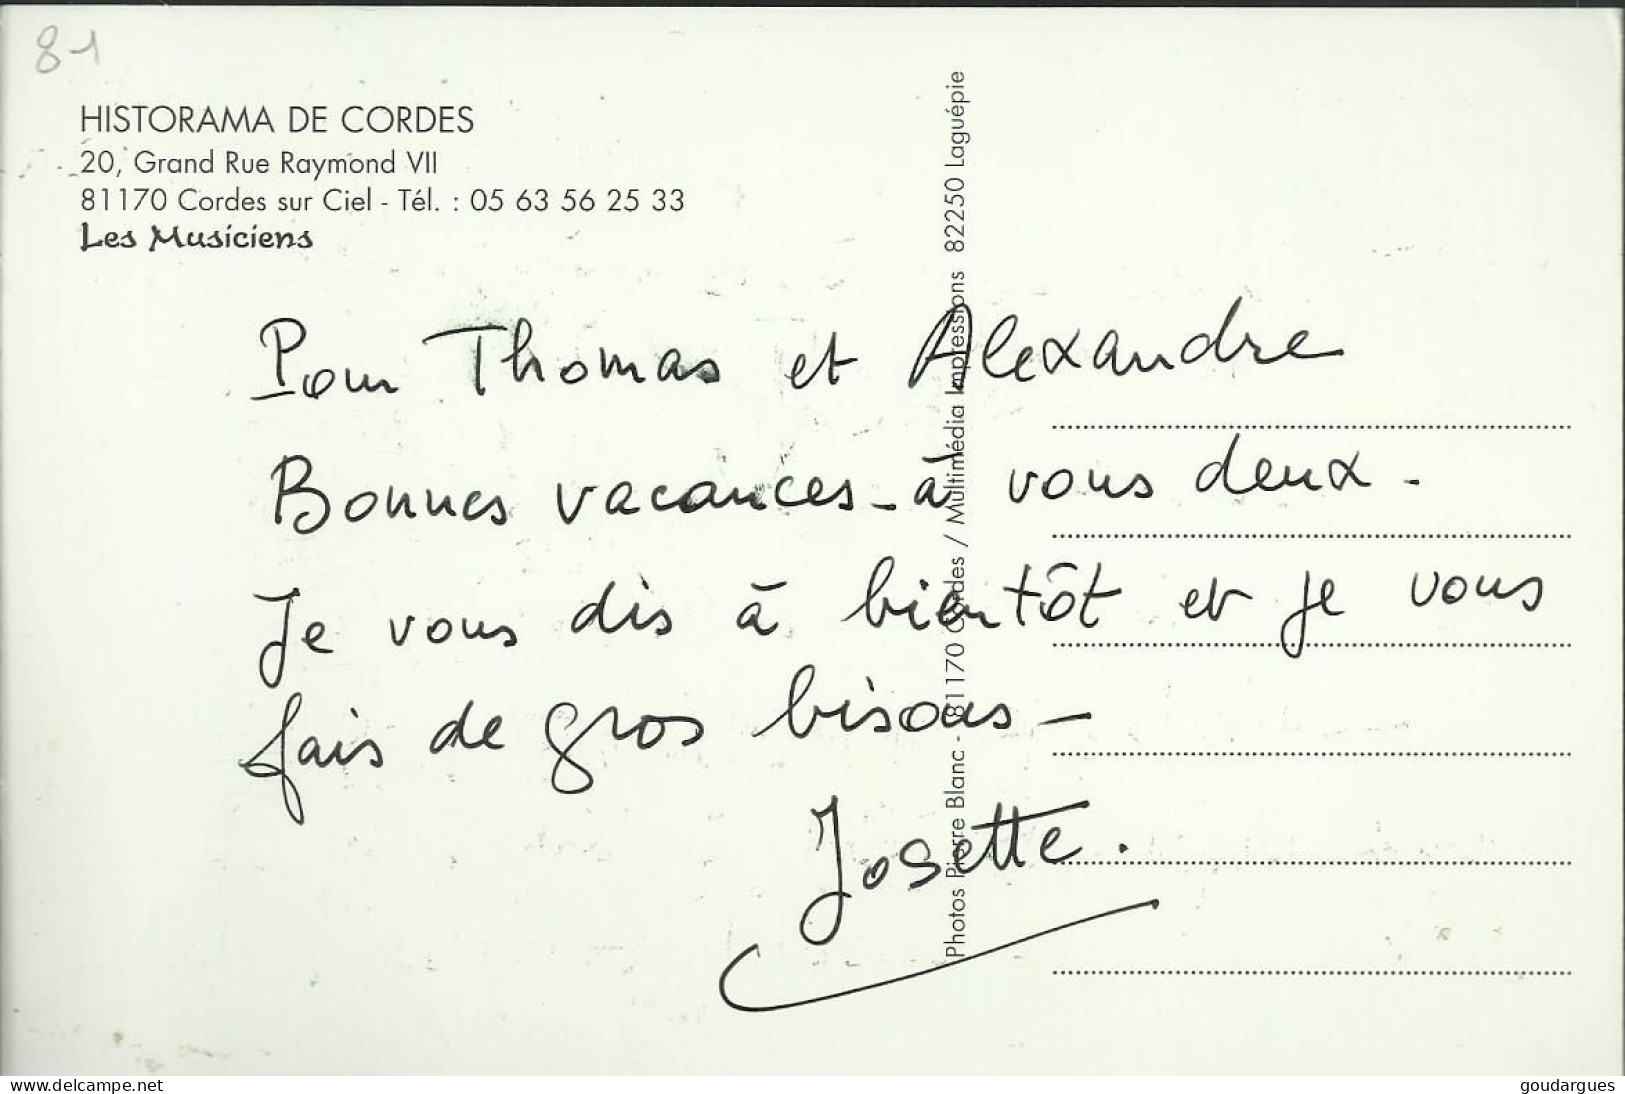 81
HISTORAMA DE CORDES
20, Grand Rue Raymond VII
81170 Cordes sur Ciel - Tél. : 05 63 56 25 33
Les Musiciens
Pour Thomas et Alexandre
Bonnes vacances - à vous deux -
Je vous dis à bientôt et je vous
fais de gros bisous -
Josette.
Photos Pierre Blanc - 81170 Cordes / Multimédia Impressions 82250 Laguépie
www.delcampe.net
goudargues